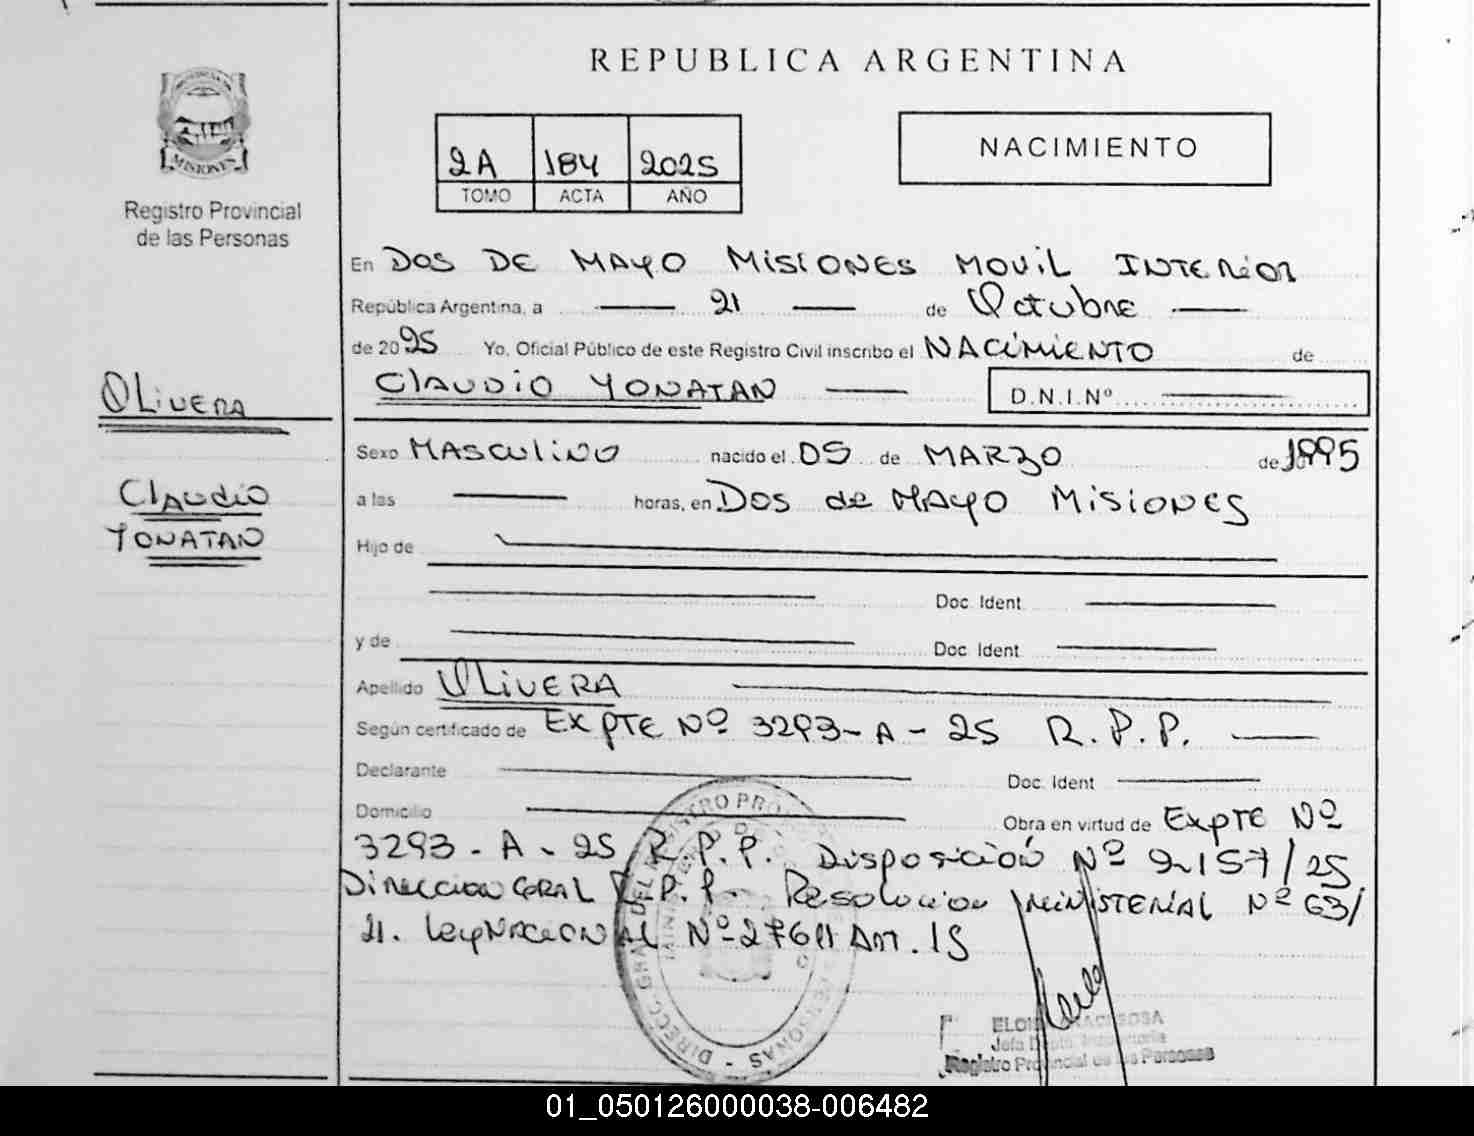 REPUBLICA ARGENTINA
MISIONES
Registro Provincial
de las Personas
2A 184 2025
TOMO ACTA AÑO
NACIMIENTO
En DOS DE MAYO MISIONES MOVIL INTERIOR
República Argentina, a 21 de Octubre
de 2025 Yo, Oficial Público de este Registro Civil inscribo el NACIMIENTO de
CLAUDIO YONATAN D.N.I.Nº
OLIVERA
CLAUDIO
YONATAN
Sexo MASCULINO nacido el 05 de MARZO de 1995
a las horas, en DOS de MAYO MISIONES
Hijo de
Doc. Ident
y de Doc. Ident
Apellido OLIVERA
Según certificado de EXPTE Nº 3293-A-25 R.P.P.
Declarante Doc. Ident
Domicilio Obra en virtud de EXPTE Nº
3293-A-25 R.P.P. Disposición Nº 2157/25
Direccion GRAL R.P.P- Resolucion MINISTERIAL Nº 63/
21. Ley NACIONAL Nº 27611 Art. 15
Registro Provincial de las Personas
01_050126000038-006482